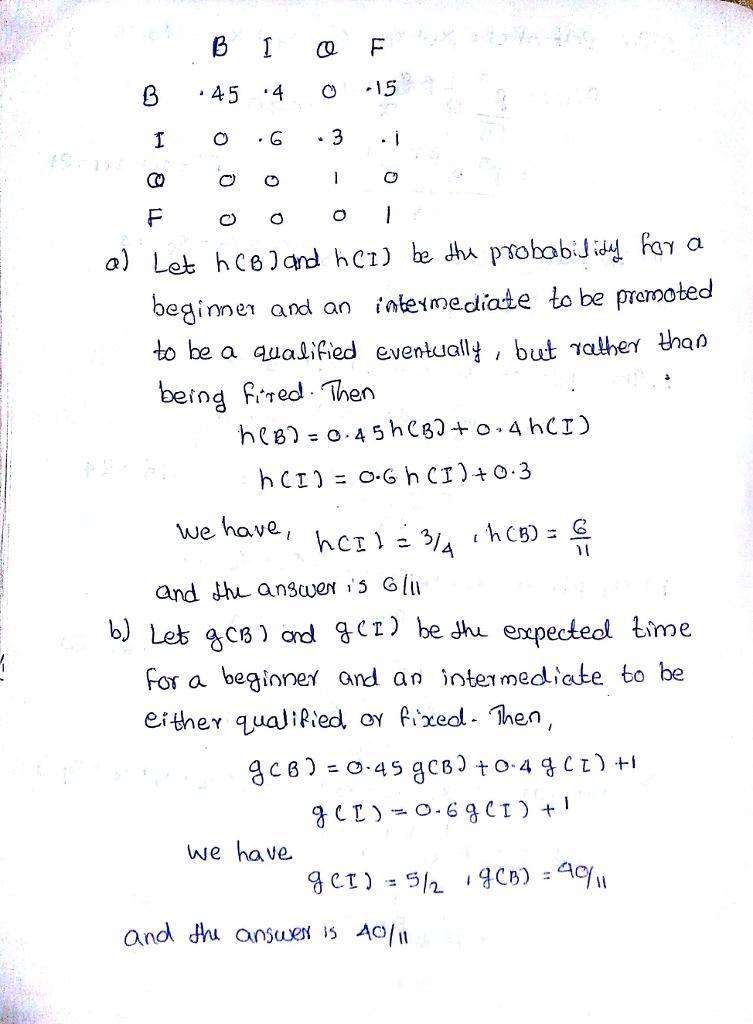 B I Q F
B .45 .4 0 .15
I 0 .6 .3 .1
Q 0 0 1 0
F 0 0 0 1
a) Let h(B) and h(I) be the probability for a
beginner and an intermediate to be promoted
to be a qualified eventually, but rather than
being fired. Then
h(B) = 0.45h(B) + 0.4h(I)
h(I) = 0.6h(I) + 0.3
we have, h(I) = 3/4, h(B) = 6/11
and the answer is 6/11
b) Let g(B) and g(I) be the expected time
for a beginner and an intermediate to be
either qualified or fixed. Then,
g(B) = 0.45g(B) + 0.4g(I) + 1
g(I) = 0.6g(I) + 1
we have
g(I) = 5/2, g(B) = 40/11
and the answer is 40/11